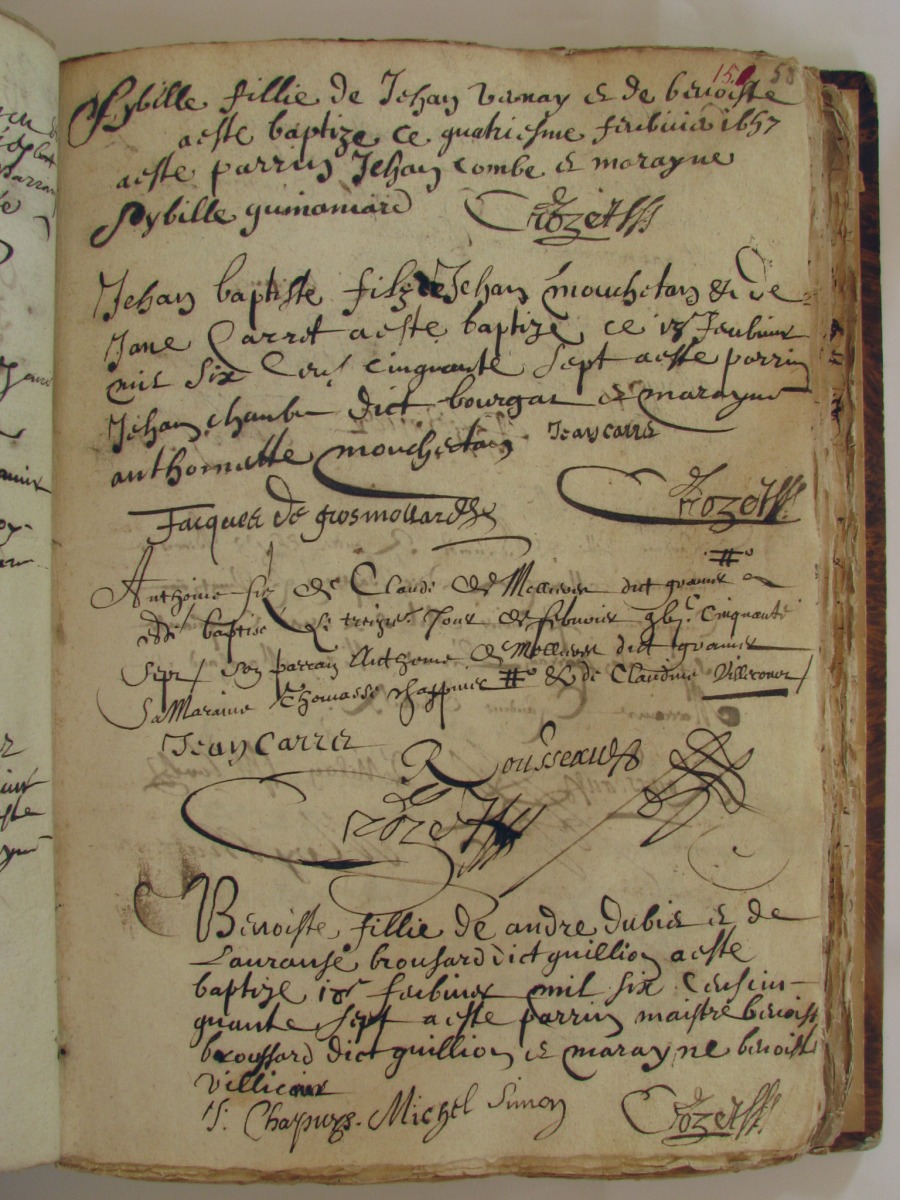 58
Sybille fillie de Jehan vernay et de benoiste
aeste baptize ce quatriesme febvrier 1657
aeste parrin Jehan Combe et marayne
Sybille guimaniard Crozet
Jehan baptiste filz de Jehan mouchetan et de
Jane Carret aeste baptize ce
mil six Cens cinquante sept aeste parrin
Jehan dict bourgat et marayne
anthoinette mouchetan Jean carre
Crozet
Jacques de grosmollard
Anthoine filz de Claude de dict
este baptise le treizie. Jour de febvrier cinquante
sept son parrain Anthoine de dict
Sa Maraine Thomasse chappuis # & de Claudine
Jean Carre Rousseau
Crozet
Benoiste fillie de andre dubie et de
Lauranse brousard dict guillion aeste
baptize mil six Cens cin-
quante sept aeste parrin maistre benoist
broussard dict guillion et marayne benoiste
J: Chapuys. Michel Simon Crozet